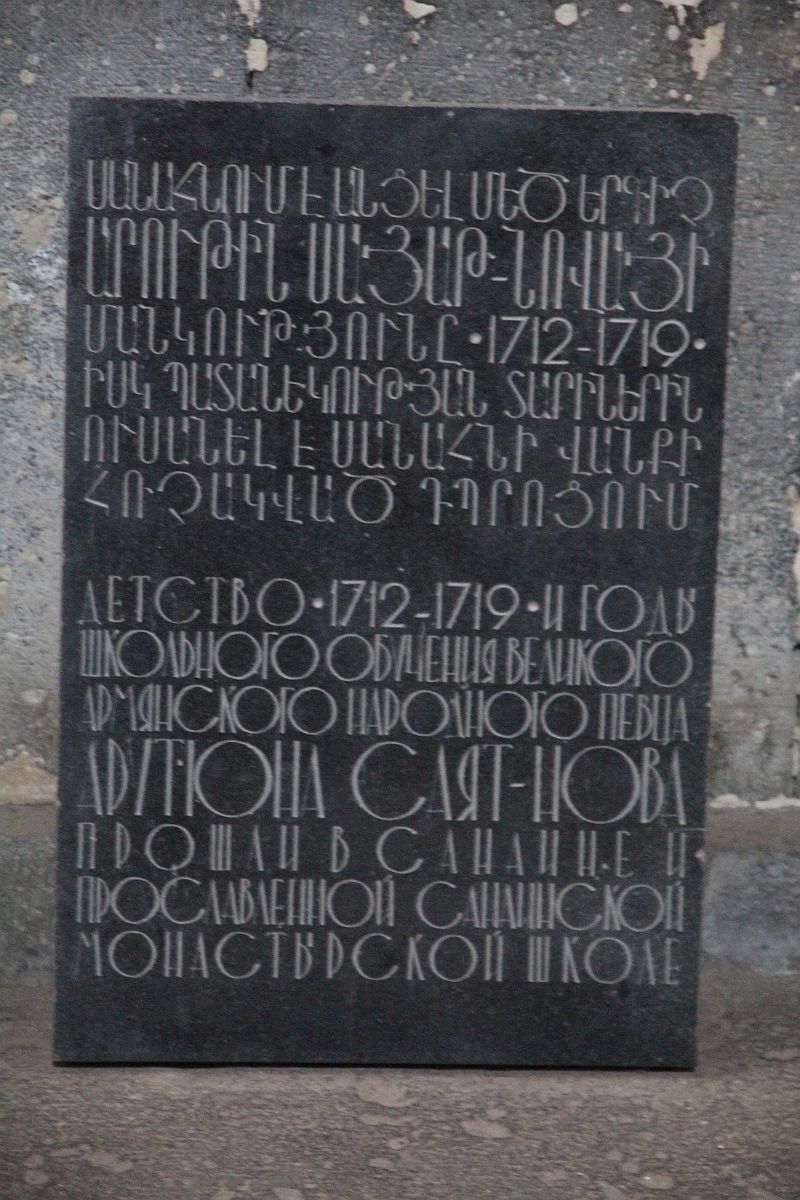 ՍԱՆԱՀՆՈՒՄ Է ԱՆՑԵԼ ՄԵԾ ԵՐԳԻՉ
ԱՐՈՒԹԻՆ ՍԱՅԱԹ-ՆՈՎԱՅԻ
ՄԱՆԿՈՒԹՅՈՒՆԸ •1712-1719•
ԻՍԿ ՊԱՏԱՆԵԿՈՒԹՅԱՆ ՏԱՐԻՆԵՐԻՆ
ՈՒՍԱՆԵԼ Է ՍԱՆԱՀՆԻ ՎԱՆՔԻ
ՀՌՉԱԿՎԱԾ ԴՊՐՈՑՈՒՄ
ДЕТСТВО •1712-1719• И ГОДЫ
ШКОЛЬНОГО ОБУЧЕНИЯ ВЕЛИКОГО
АРМЯНСКОГО НАРОДНОГО ПЕВЦА
АРУТЮНА САЯТ-НОВА
ПРОШЛИ В САНАИНЕ И
ПРОСЛАВЛЕННОЙ САНАИНСКОЙ
МОНАСТЫРСКОЙ ШКОЛЕ